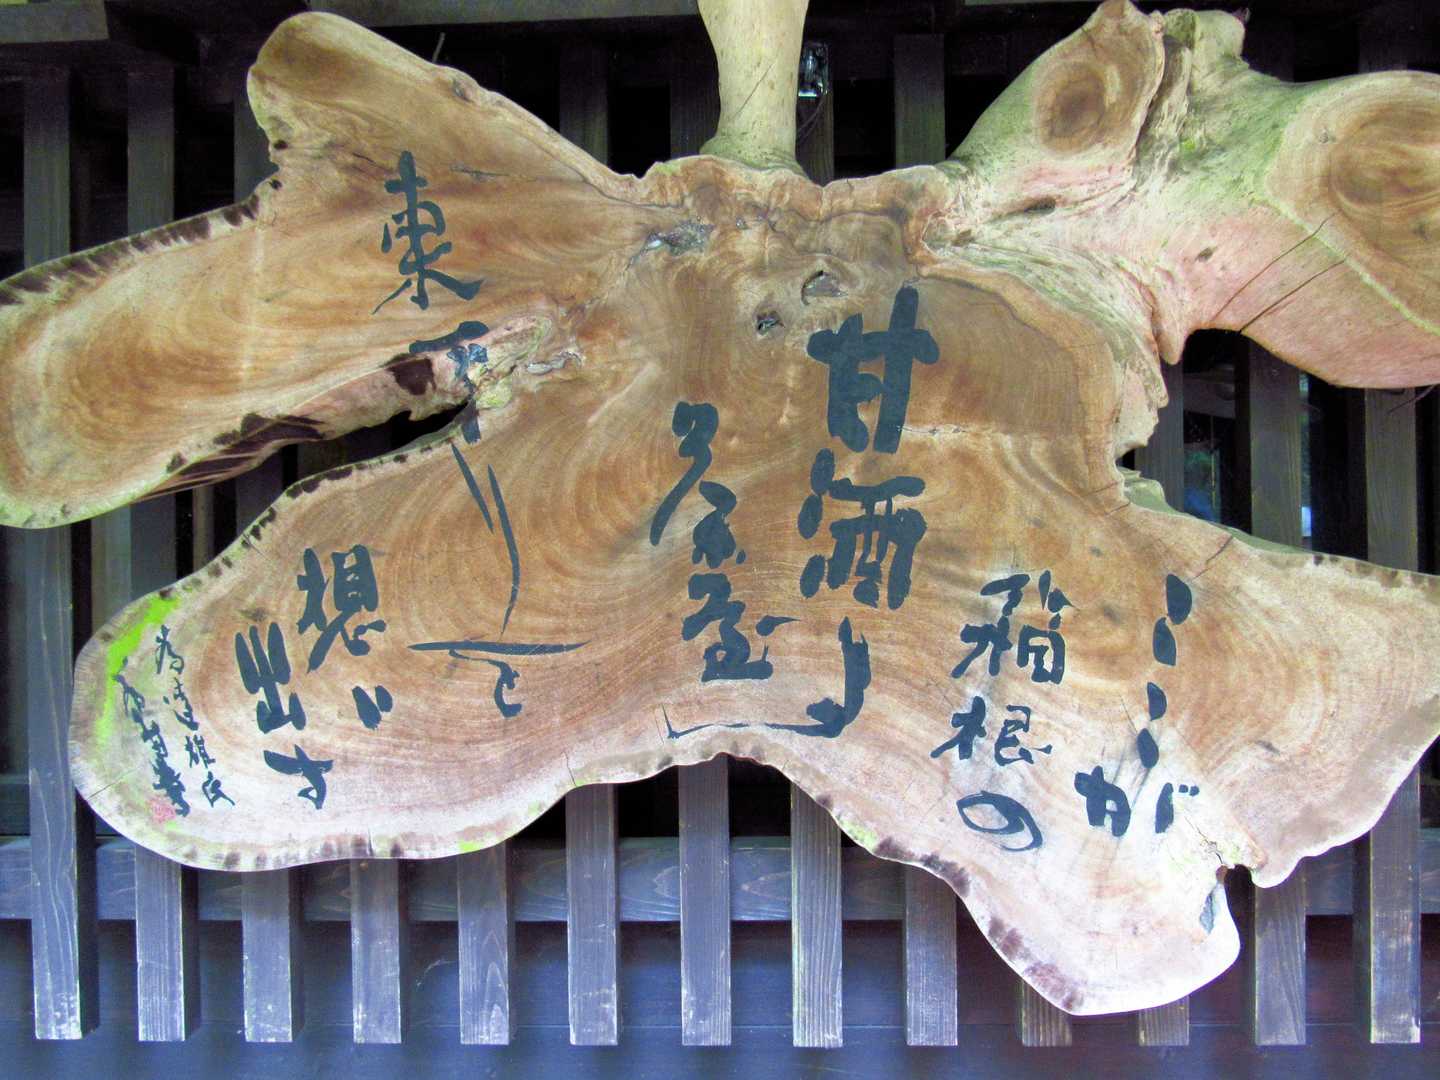 ここが
箱根の
甘酒
茶屋
東下り
と
想い
出す